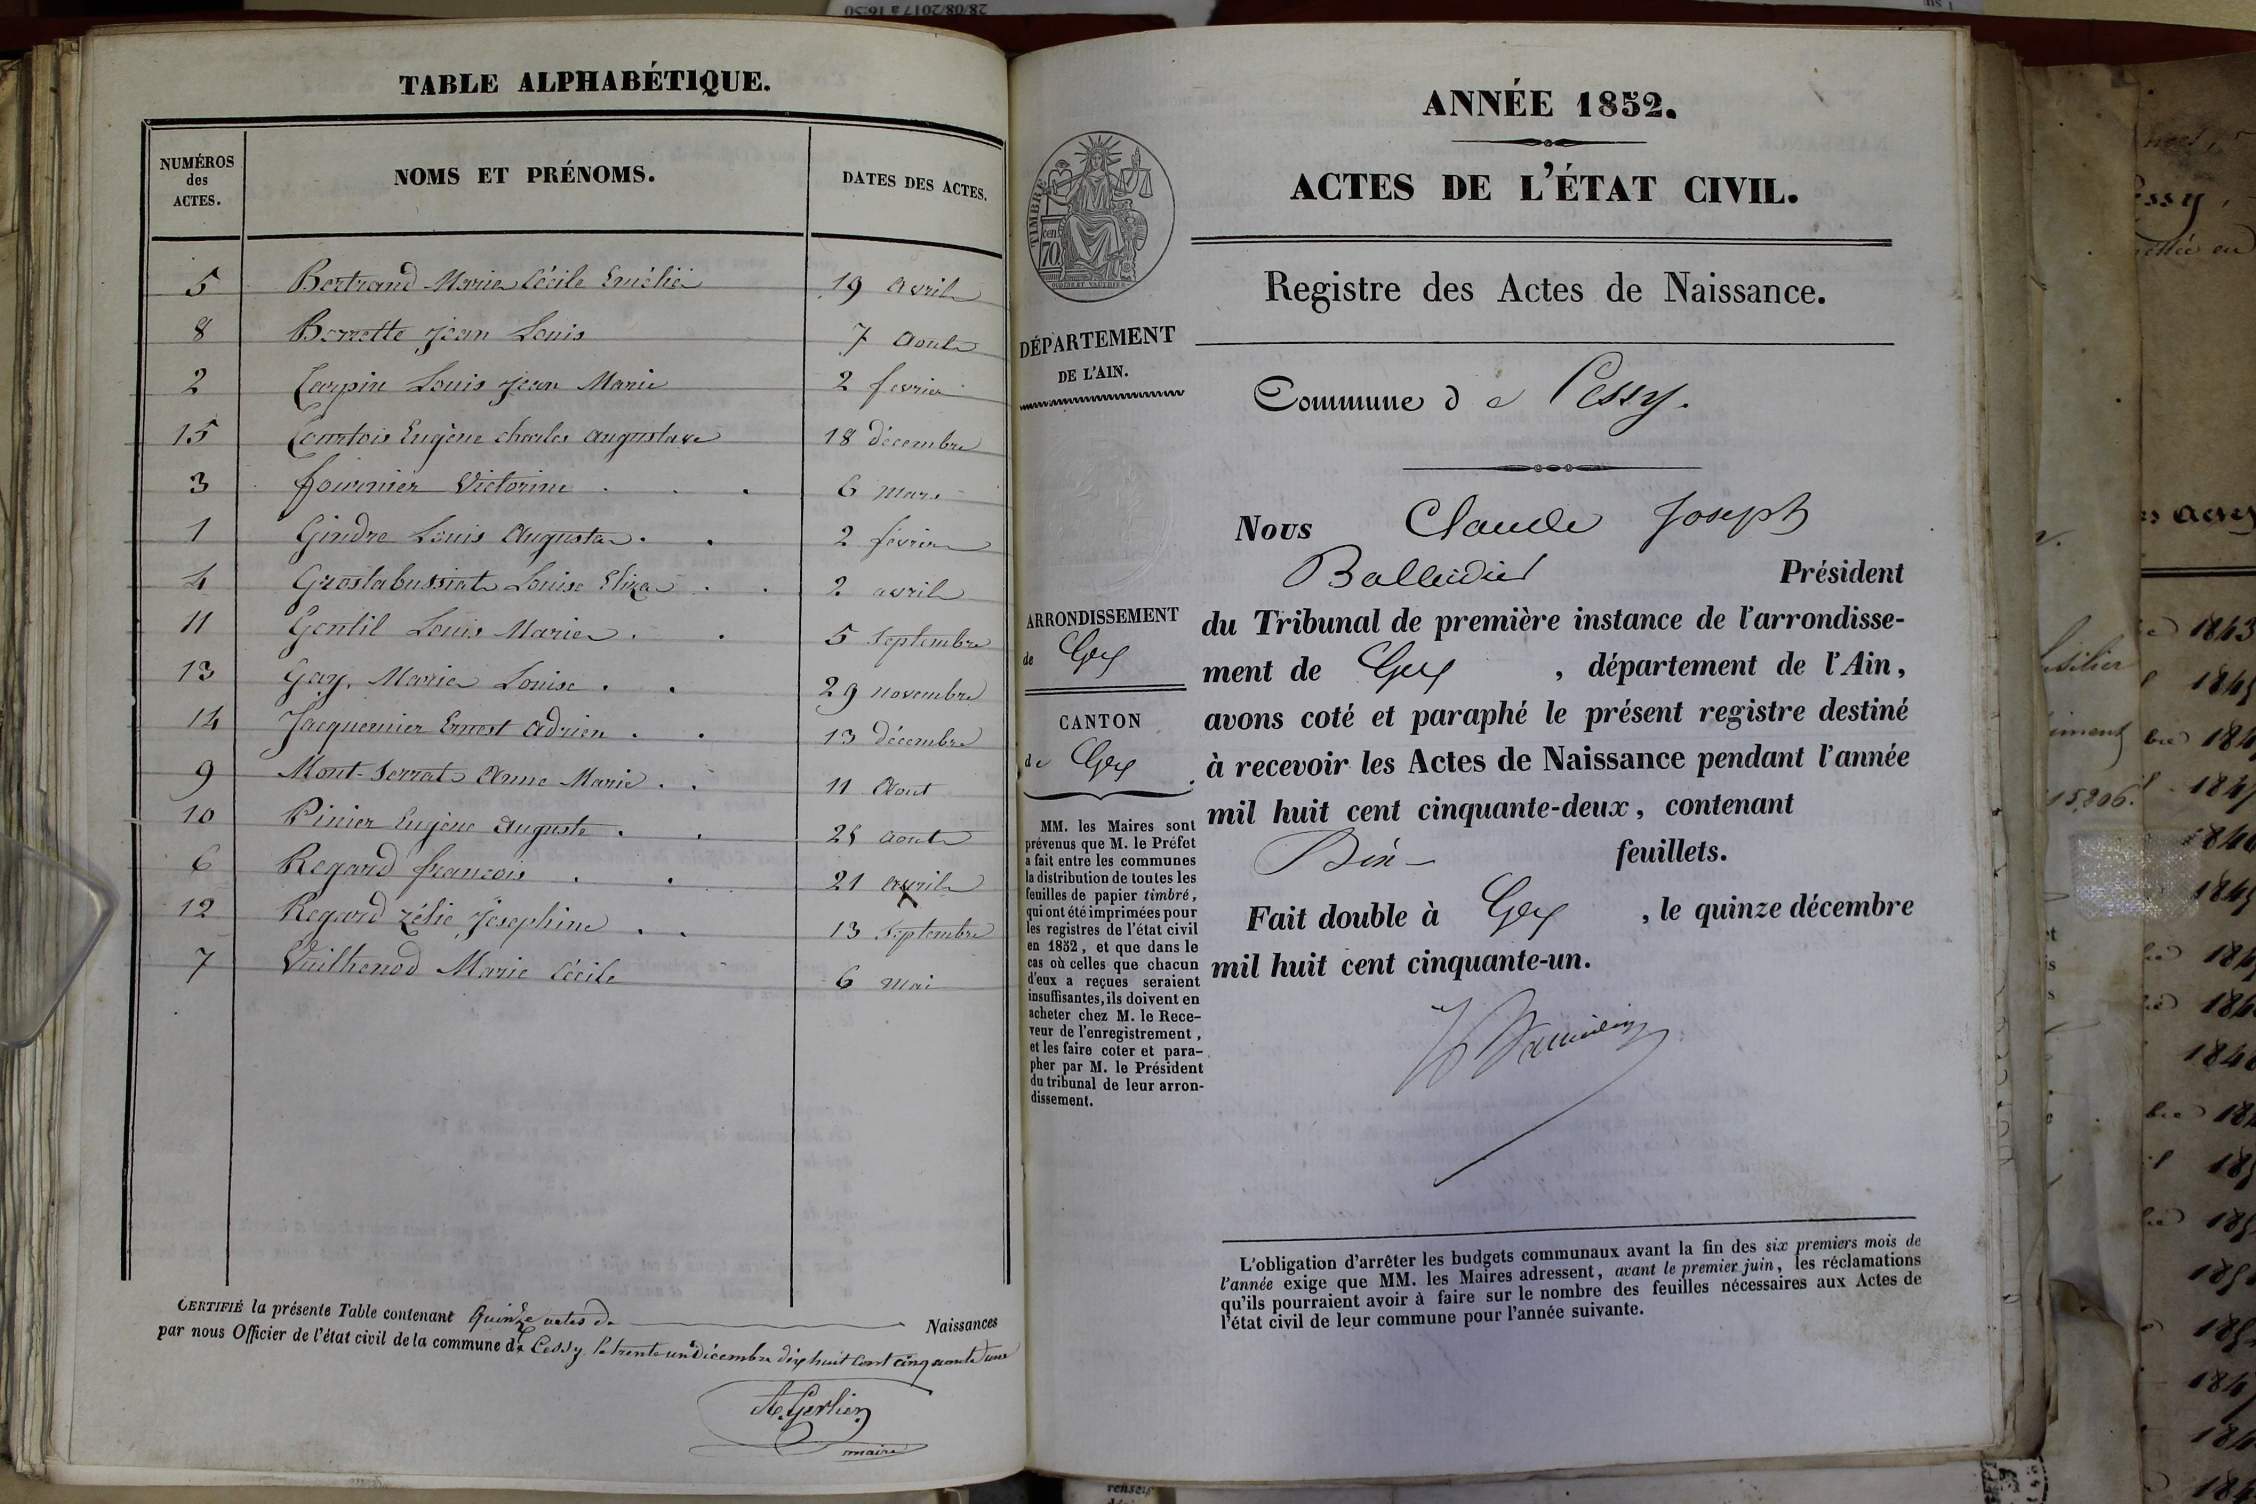 28/08/2017 à 16:50
TABLE ALPHABÉTIQUE.
NUMÉROS des ACTES. NOMS ET PRÉNOMS. DATES DES ACTES.
5 Bertrand Marie Cécile Emélie 19 avril
8 Borrette Jean Louis 7 Aout
2 Carpin Louis Jean Marie 2 fevrier
15 Courtois Eugène Charles Augustave 18 décembre
3 fournier Victorine 6 Mars
1 Gindre Louis Auguste 2 février
4 Groslabussiat Louise Eliza 2 avril
11 Gentil Louis Marie 5 Septembre
13 Gay Marie Louise 29 novembre
14 Jacquemier Ernest Adrien 13 décembre
9 Mont-Serrat Anne Marie 11 Aout
10 Pinier Eugène Auguste 25 aout
6 Regard françois 21 avril
12 Regard Zélie Joséphine 13 Septembre
7 Vuilhenod Marie Cécile 6 mai
CERTIFIÉ la présente Table contenant Quinze actes de Naissances
par nous Officier de l'état civil de la commune de Cessy, le trente un Décembre dix huit Cent cinquante une
A. Gerlier
maire
ANNÉE 1852.
ACTES DE L'ÉTAT CIVIL.
TIMBRE
70 cent
Registre des Actes de Naissance.
DÉPARTEMENT
DE L'AIN.
Commune de Cessy.
Nous Claude Joseph
Balleidier Président
ARRONDISSEMENT
de Gex
du Tribunal de première instance de l'arrondisse-
ment de Gex, département de l'Ain,
CANTON
de Gex
avons coté et paraphé le présent registre destiné
à recevoir les Actes de Naissance pendant l'année
mil huit cent cinquante-deux, contenant
Dix feuillets.
Fait double à Gex, le quinze décembre
mil huit cent cinquante-un.
MM. les Maires sont
prévenus que M. le Préfet
a fait entre les communes
la distribution de toutes les
feuilles de papier timbré,
qui ont été imprimées pour
les registres de l'état civil
en 1852, et que dans le
cas où celles que chacun
d'eux a reçues seraient
insuffisantes, ils doivent en
acheter chez M. le Rece-
veur de l'enregistrement,
et les faire coter et para-
pher par M. le Président
du tribunal de leur arron-
dissement.
L'obligation d'arrêter les budgets communaux avant la fin des six premiers mois de
l'année exige que MM. les Maires adressent, avant le premier juin, les réclamations
qu'ils pourraient avoir à faire sur le nombre des feuilles nécessaires aux Actes de
l'état civil de leur commune pour l'année suivante.